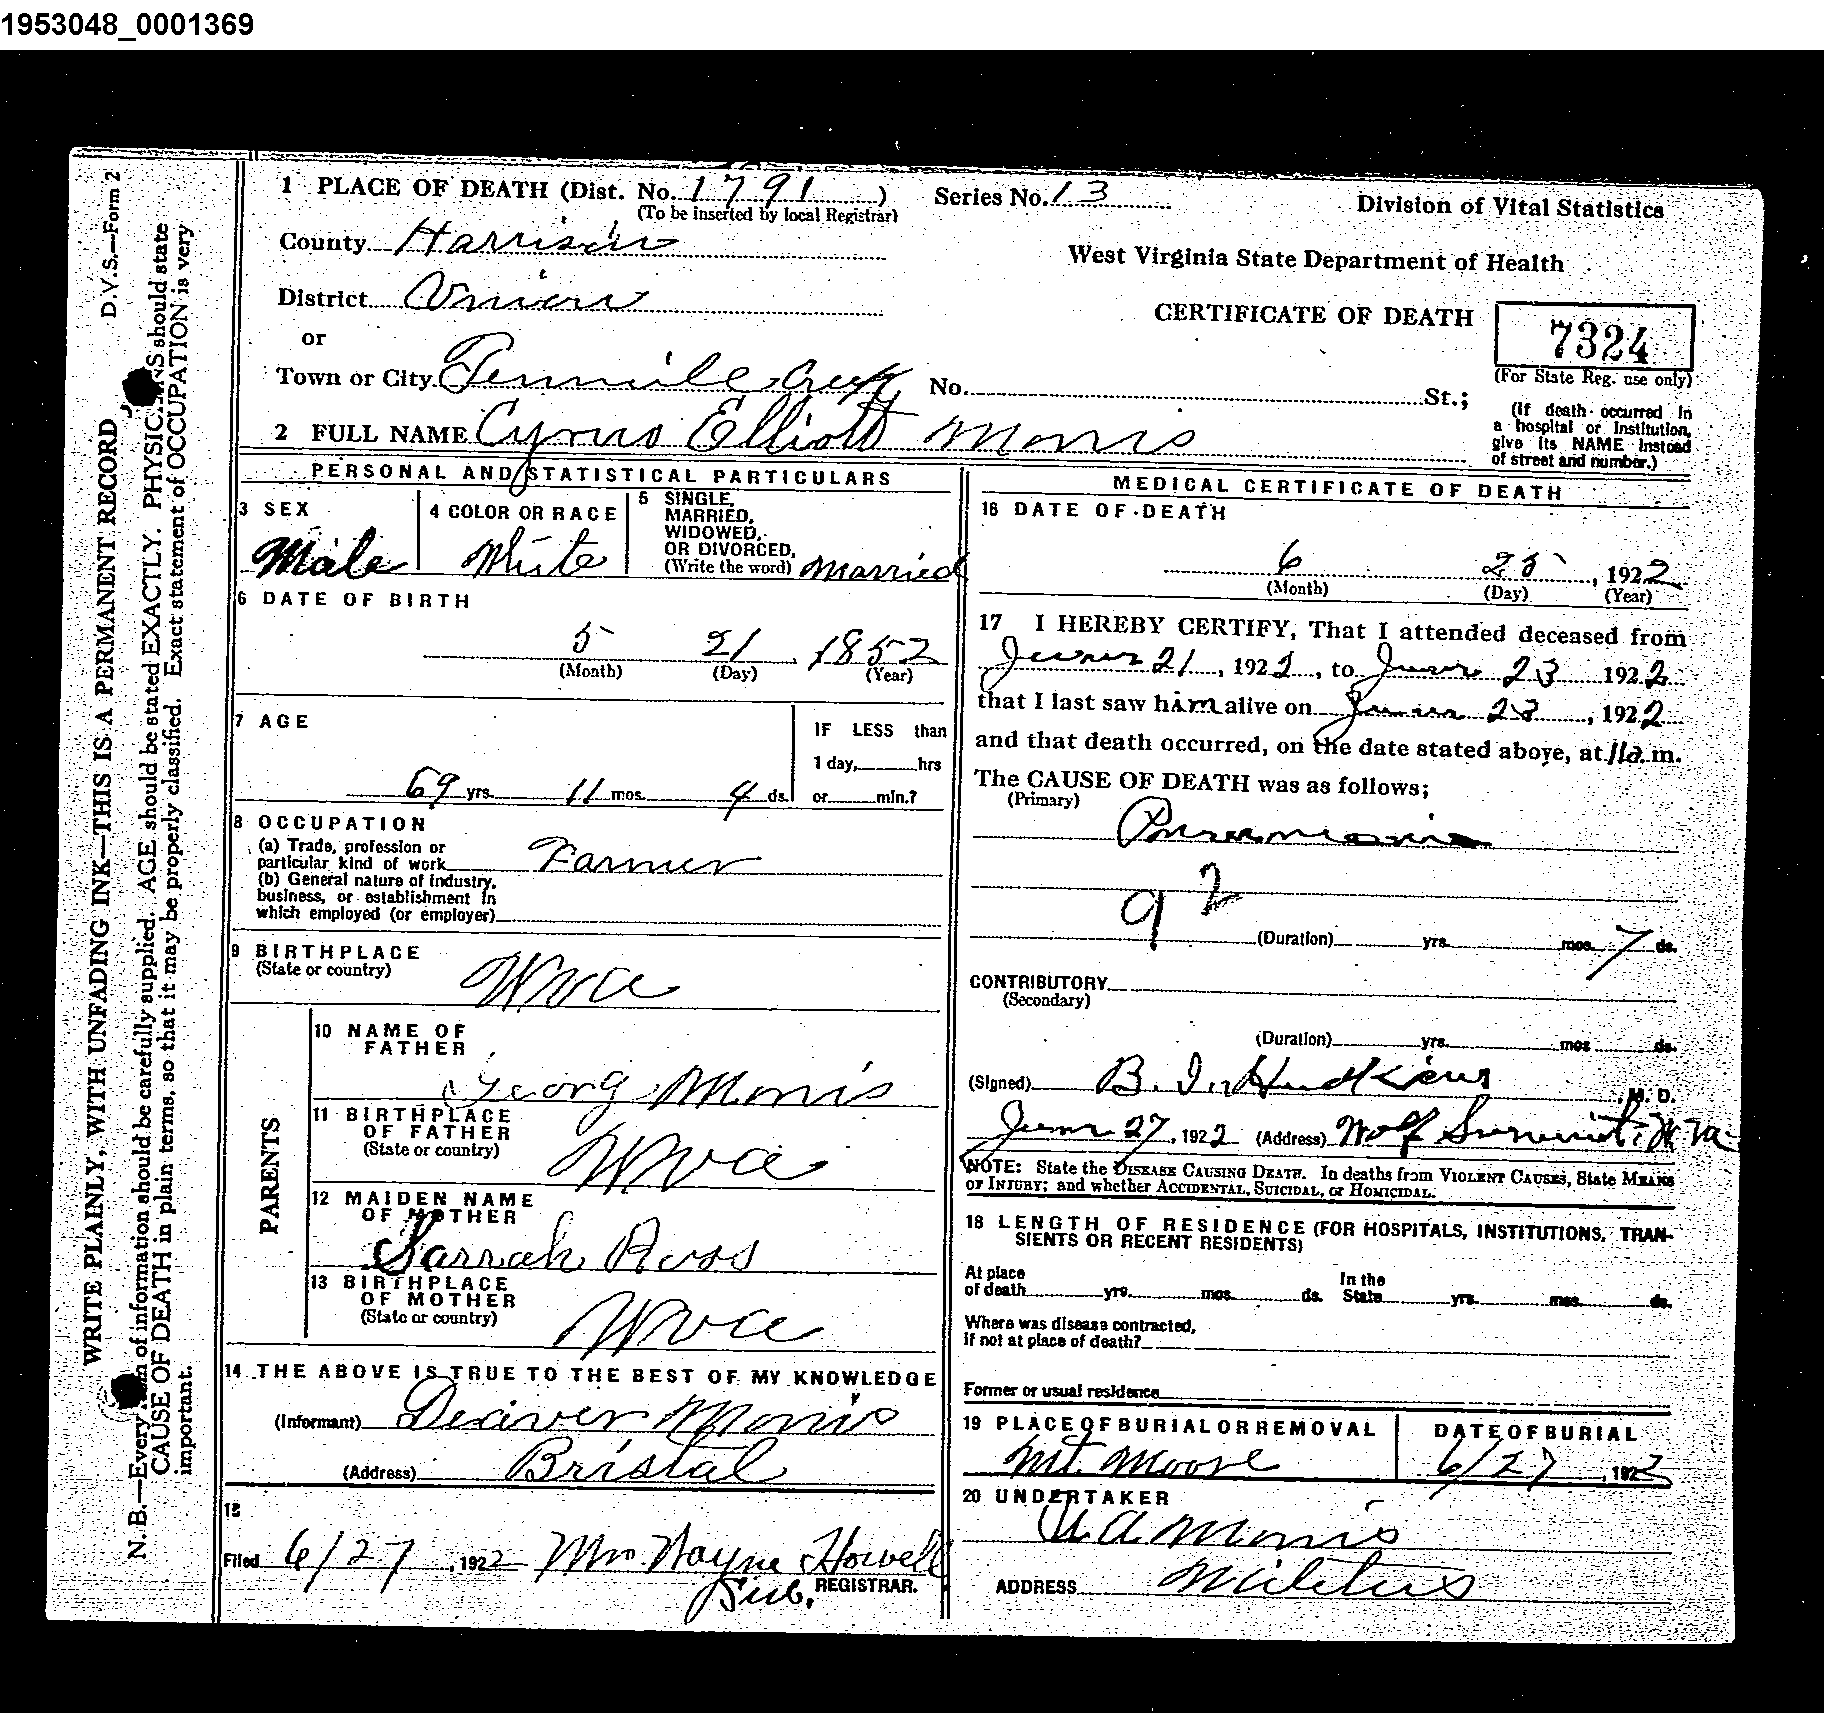 1953048_0001369
1 PLACE OF DEATH (Dist. No. 1791 ) Series No. 13
(To be inserted by local Registrar)
Division of Vital Statistics
County Harrison
West Virginia State Department of Health
District Union
or
CERTIFICATE OF DEATH
7324
(For State Reg. use only)
Town or City Tenmile Creek No. St.;
(If death occurred in
a hospital or institution,
give its NAME instead
of street and number.)
2 FULL NAME Cyrus Elliott Morris
PERSONAL AND STATISTICAL PARTICULARS
3 SEX
Male
4 COLOR OR RACE
White
5 SINGLE,
MARRIED,
WIDOWED,
OR DIVORCED,
(Write the word) Married
6 DATE OF BIRTH
5 21, 1852
(Month) (Day) (Year)
7 AGE
69 yrs. 11 mos. 4 ds.
IF LESS than
1 day, hrs
or min.?
8 OCCUPATION
(a) Trade, profession or
particular kind of work Farmer
(b) General nature of industry,
business, or establishment in
which employed (or employer)
9 BIRTHPLACE
(State or country) Wva
PARENTS
10 NAME OF
FATHER
Georg Morris
11 BIRTHPLACE
OF FATHER
(State or country) Wva
12 MAIDEN NAME
OF MOTHER
Sarrah Ross
13 BIRTHPLACE
OF MOTHER
(State or country) Wva
14 THE ABOVE IS TRUE TO THE BEST OF MY KNOWLEDGE
(Informant) Deaver Morris
(Address) Bristal
15
Filed 6/27, 1922 Mrs Wayne Howell
Sub. REGISTRAR.
MEDICAL CERTIFICATE OF DEATH
16 DATE OF DEATH
6 25, 1922
(Month) (Day) (Year)
17 I HEREBY CERTIFY, That I attended deceased from
June 21, 1922, to June 23 1922
that I last saw him alive on June 23, 1922
and that death occurred, on the date stated above, at 11a.m.
The CAUSE OF DEATH was as follows;
(Primary)
Pneumonia
92
(Duration) yrs. mos. 7 ds.
CONTRIBUTORY
(Secondary)
(Duration) yrs. mos ds.
(Signed) B. I. Hudkins, M. D.
June 27, 1922 (Address) Wolf Summit, W Va
NOTE: State the DISEASE CAUSING DEATH. In deaths from VIOLENT CAUSES, State MEANS
OF INJURY; and whether ACCIDENTAL, SUICIDAL, or HOMICIDAL.
18 LENGTH OF RESIDENCE (FOR HOSPITALS, INSTITUTIONS, TRAN-
SIENTS OR RECENT RESIDENTS)
At place
of death yrs. mos. ds.
In the
State yrs. mos. ds.
Where was disease contracted,
if not at place of death?
Former or usual residence
19 PLACE OF BURIAL OR REMOVAL
Mt. Moore
DATE OF BURIAL
6/27, 1922
20 UNDERTAKER
U. A. Morris
ADDRESS Miletus
D.V.S.—Form 2
WRITE PLAINLY, WITH UNFADING INK—THIS IS A PERMANENT RECORD
N. B.—Every of information should be carefully supplied. AGE should be stated EXACTLY. PHYSICIANS should state
CAUSE OF DEATH in plain terms, so that it may be properly classified. Exact statement of OCCUPATION is very
important.